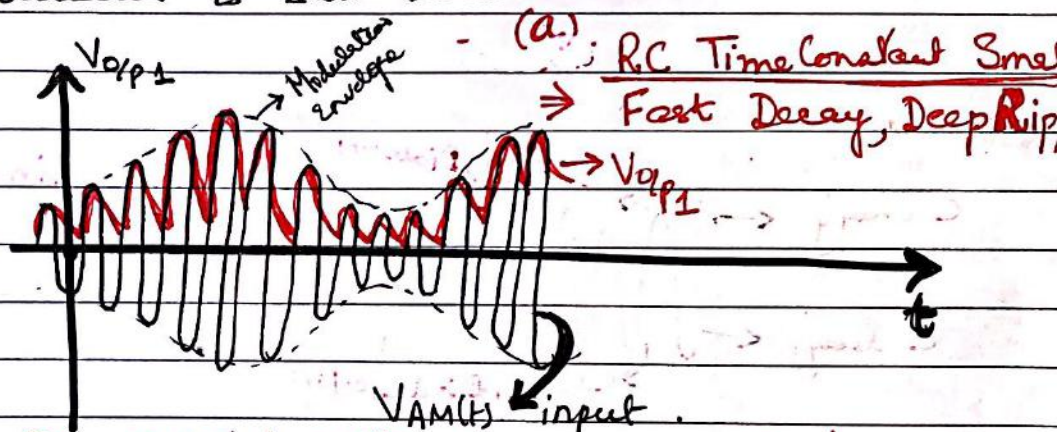 Vo/p1
Modulation
Envelope
(a)
; RC Time Constant Smal
⇒ Fast Decay, Deep Rip
→ Vo/p1
t
VAM(t) input.